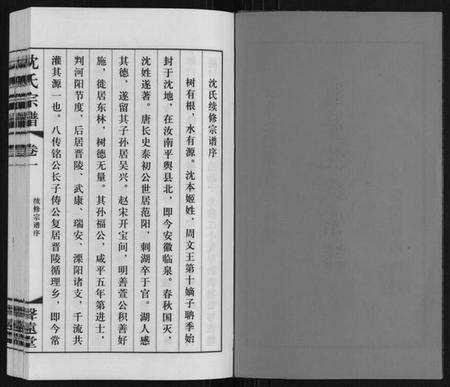 沈氏续修宗谱序
树有根，水有源。沈本姬姓，周文王第十嫡子聃季始
封于沈地，在汝南平舆县北，即今安徽临泉。春秋国灭，
沈姓遂著。唐长史泰初公世居范阳，刺湖卒于官。湖人感
其德，遂留其子孙居吴兴。赵宋开宝间，明善萱公积善好
施，徙居东林，树德无量。其孙福公，咸平五年第进士，
判河阳节度，后居晋陵、武康、瑞安、溧阳诸支，千流共
灌其源一也。八传铭公长子俦公复居晋陵循理乡，即今常
沈氏宗谱
卷一
续修宗谱序
肇远堂